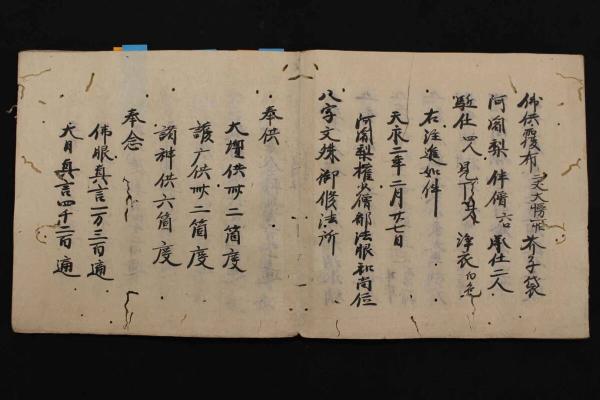 佛供覆布二丈大幔一帖 芥子袋
阿闍梨 伴僧六口 承仕二人
駈仕四人 見丁二人 浄衣白色
右注進如件
天永二年二月廿七日
阿闍梨権少僧都法眼和尚位
八字文殊御修法所
奉供
大壇供卌二箇度
護广供卌二箇度
諸神供六箇度
奉念
佛眼真言二万三百遍
大日真言四千二百遍